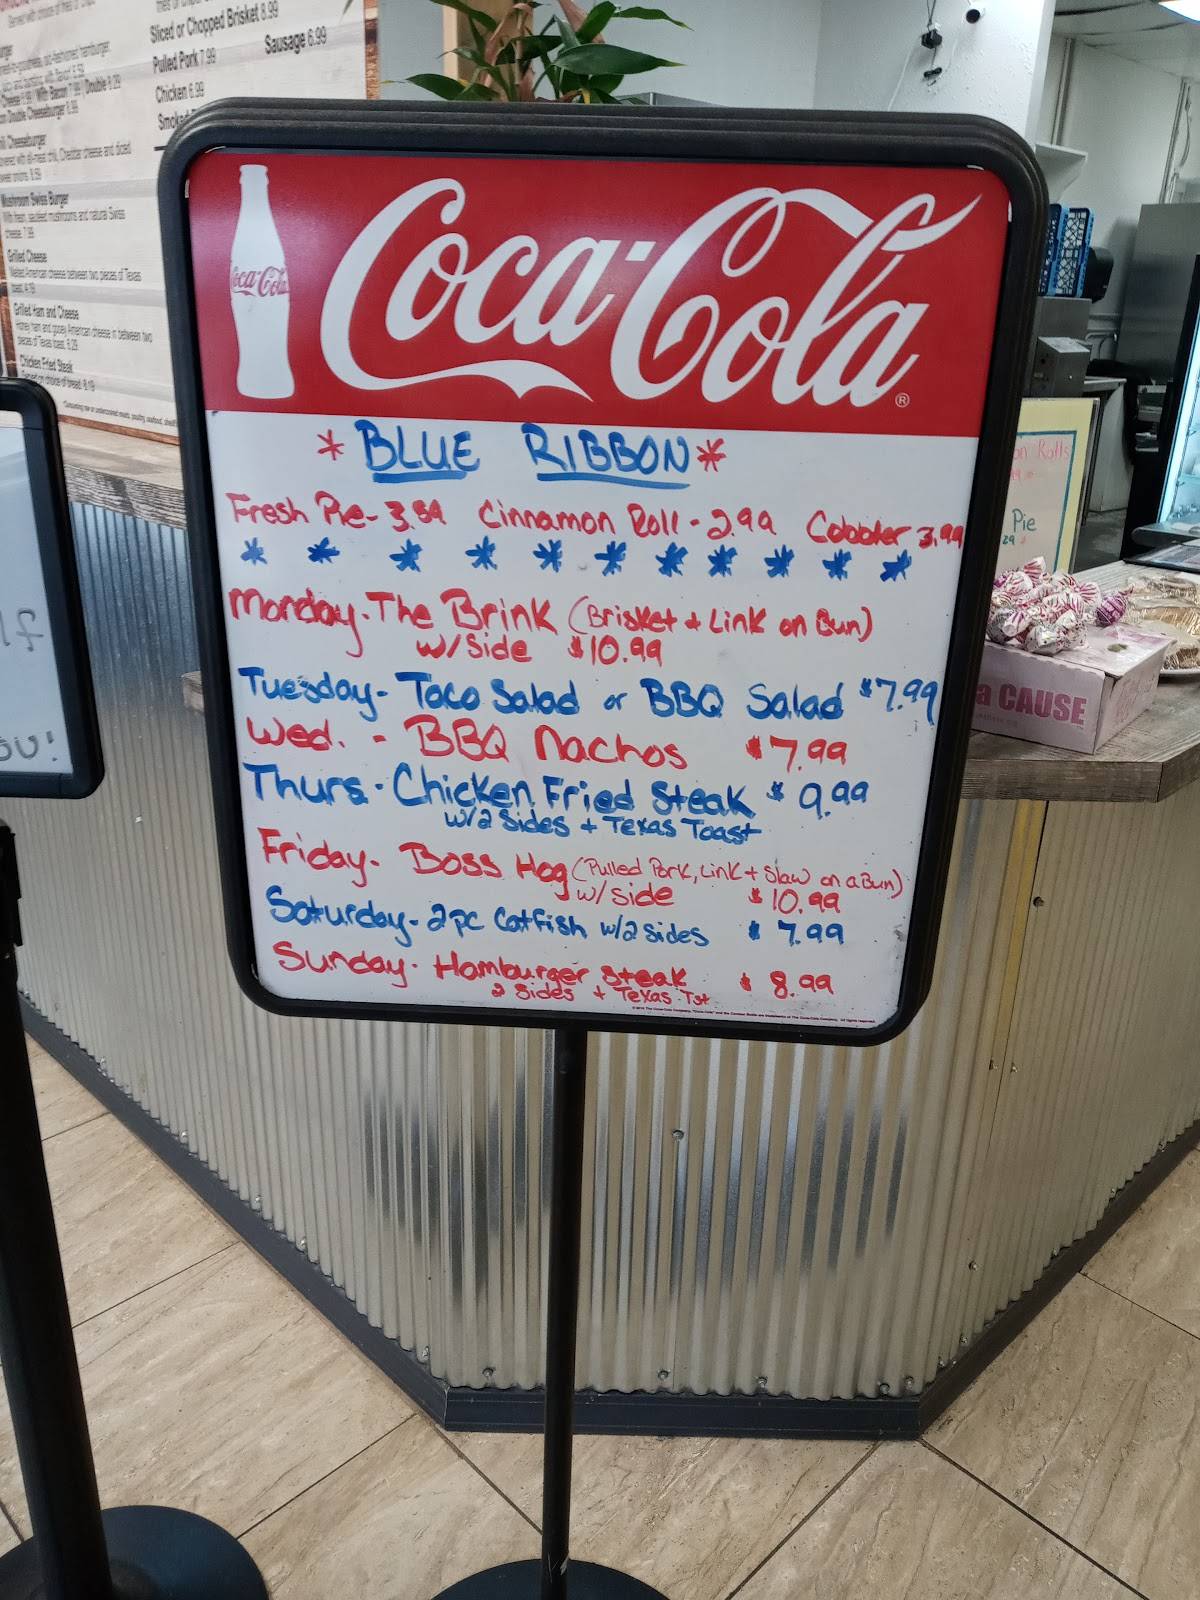 Sliced or Chopped Brisket 8.99
Pulled Pork 7.99
Sausage 6.99
Chicken 6.99
Mushroom Swiss Burger
Grilled Cheese
Grilled Ham and Cheese
Chicken Fried Steak
Coca-Cola
Coca-Cola®
* BLUE RIBBON *
Fresh Pie - 3.59 Cinnamon Roll - 2.99 Cobbler 3.99
* * * * * * * * * * *
Monday - The Brink (Brisket + Link on Bun)
w/Side $10.99
Tuesday - Taco Salad or BBQ Salad $7.99
Wed. - BBQ Nachos $7.99
Thurs - Chicken Fried Steak $9.99
w/2 Sides + Texas Toast
Friday - Boss Hog (Pulled Pork, Link + Slaw on a Bun)
w/side $10.99
Saturday - 2pc Catfish w/2 sides $7.99
Sunday - Hamburger Steak $8.99
2 Sides + Texas Tst
on Rolls
Pie
a CAUSE